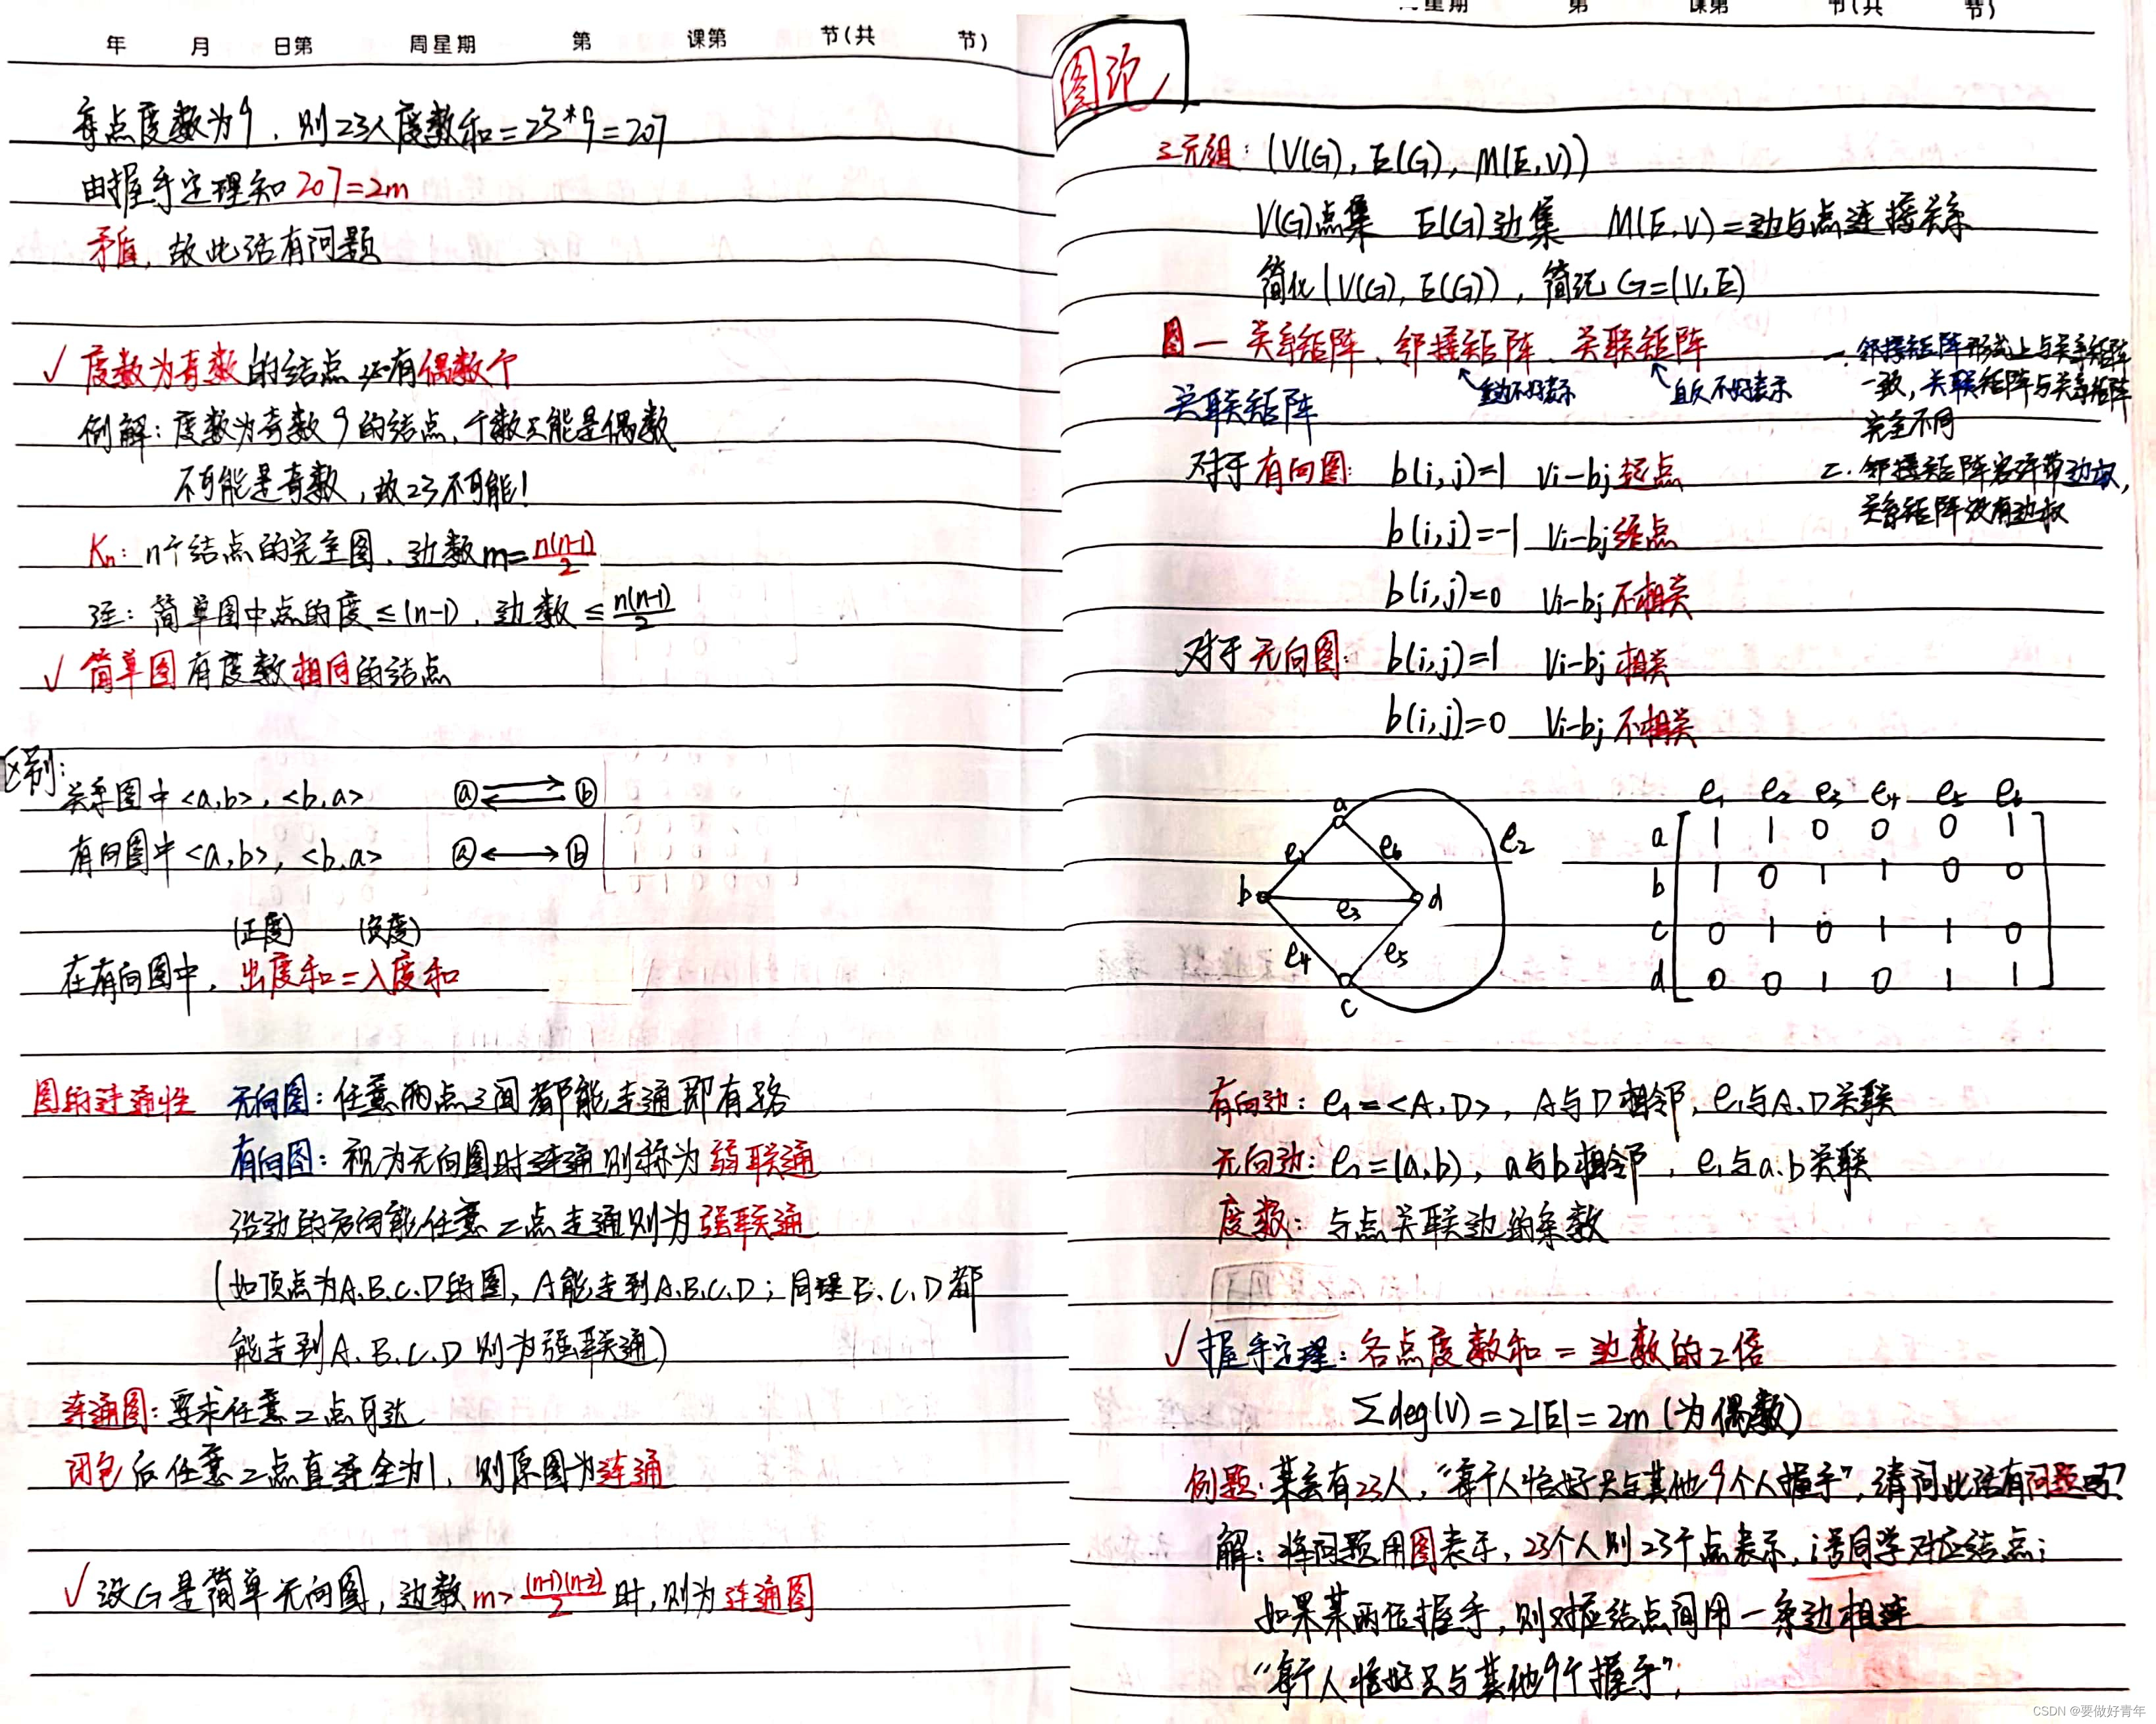 年 月 日第 周星期 第 课第 节(共 节)
每点度数为9, 则23人度数和=23*9=207
由握手定理知 207=2m
矛盾, 故此话有问题
√ 度数为奇数的结点必有偶数个
例解: 度数为奇数9的结点, 个数只能是偶数
不可能是奇数, 故23不可能!
Kn: n个结点的完全图, 边数m=n(n-1)/2
注: 简单图中点的度≤(n-1), 边数≤n(n-1)/2
√ 简单图有度数相同的结点
区别:
关系图中<a,b>, <b,a> ⓐ ⇄ ⓑ
有向图中<a,b>, <b,a> ⓐ ↔ ⓑ
(正度) (负度)
在有向图中, 出度和=入度和
图的连通性 无向图: 任意两点之间都能走通即有路
有向图: 视为无向图时连通则称为弱联通
沿边的方向能任意二点走通则为强联通
(如顶点为A.B.C.D的图, A能走到A.B.C.D; 同理B.C.D都
能走到A.B.C.D则为强联通)
连通图: 要求任意二点可达
闭包后任意二点直连全为1, 则原图为连通
√ 设G是简单无向图, 边数m>(n-1)(n-2)/2时, 则为连通图
星期 第 课第 节(共 节)
图论
三元组: (V(G), E(G), M(E,V))
V(G)点集 E(G)边集 M(E,V)=边与点连接关系
简化(V(G), E(G)), 简记G=(V,E)
图一 关系矩阵、邻接矩阵、关联矩阵
↖重边不好表示 ↖自反不好表示
一. 邻接矩阵形式上与关系矩阵
一致, 关联矩阵与关系矩阵
完全不同
二. 邻接矩阵容许带边权,
关系矩阵没有边权
关联矩阵
对于有向图: b(i,j)=1 Vi-bj起点
b(i,j)=-1 Vi-bj终点
b(i,j)=0 Vi-bj不相关
对于无向图: b(i,j)=1 Vi-bj相关
b(i,j)=0 Vi-bj不相关
a
e1 e6 e2
b e3 d
e4 e5
c
e1 e2 e3 e4 e5 e6
a 1 1 0 0 0 1
b 1 0 1 1 0 0
c 0 1 0 1 1 0
d 0 0 1 0 1 1
有向边: e1=<A,D>, A与D相邻, e1与A.D关联
无向边: e1=(a,b), a与b相邻, e1与a.b关联
度数: 与点关联边的条数
√ 握手定理: 各点度数和=边数的2倍
∑deg(V)=2|E|=2m (为偶数)
例题: 某会有23人, “每个人恰好只与其他9个人握手”, 请问此话有问题吗?
解: 将问题用图表示, 23个人则23个点表示, 诸同学对应结点;
如果某两位握手, 则对应结点间用一条边相连
“每个人恰好只与其他9个握手”;
CSDN @要做好青年